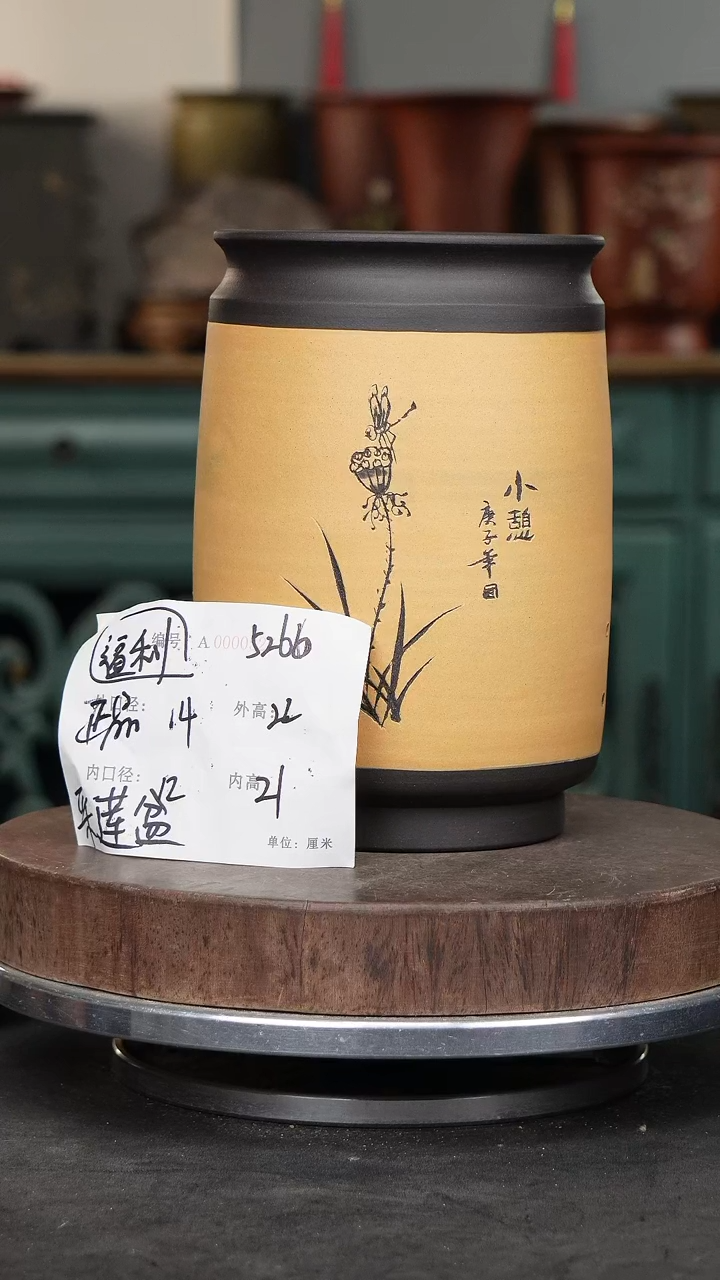 小憩
庚子年
福利 编号：A 0000 5266
外口径： 14 外高： 22
内口径： 12 内高 21
莲盆
单位：厘米